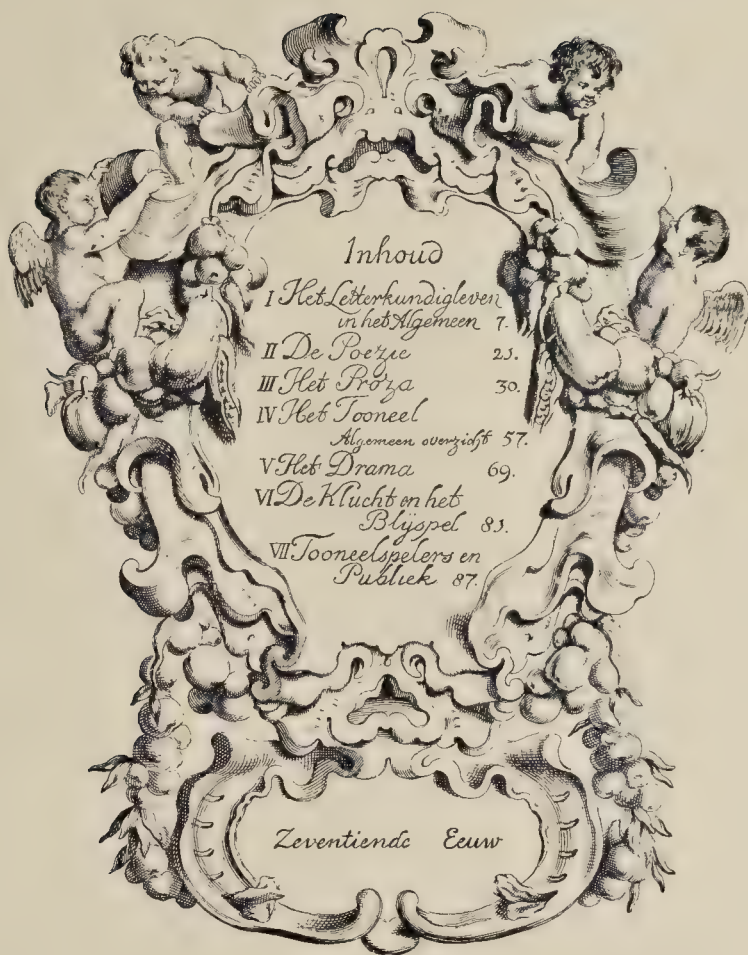 Inhoud
I Het Letterkundig leven
in het Algemeen 7.
II De Poezie 25.
III Het Proza 30.
IV Het Tooneel
Algemeen overzicht 57.
V Het Drama 69.
VI De Klucht en het
Blÿspel 83.
VII Tooneelspelers en
Publiek 87.
Zeventiende Eeuw